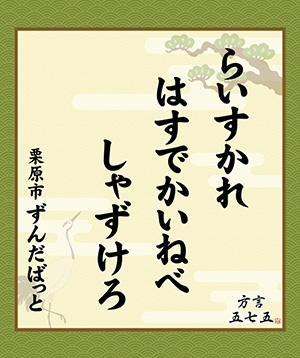 らいすかれ
はすでかいねべ
しゃずけろ
栗原市 ずんだばっと
方言
五七五